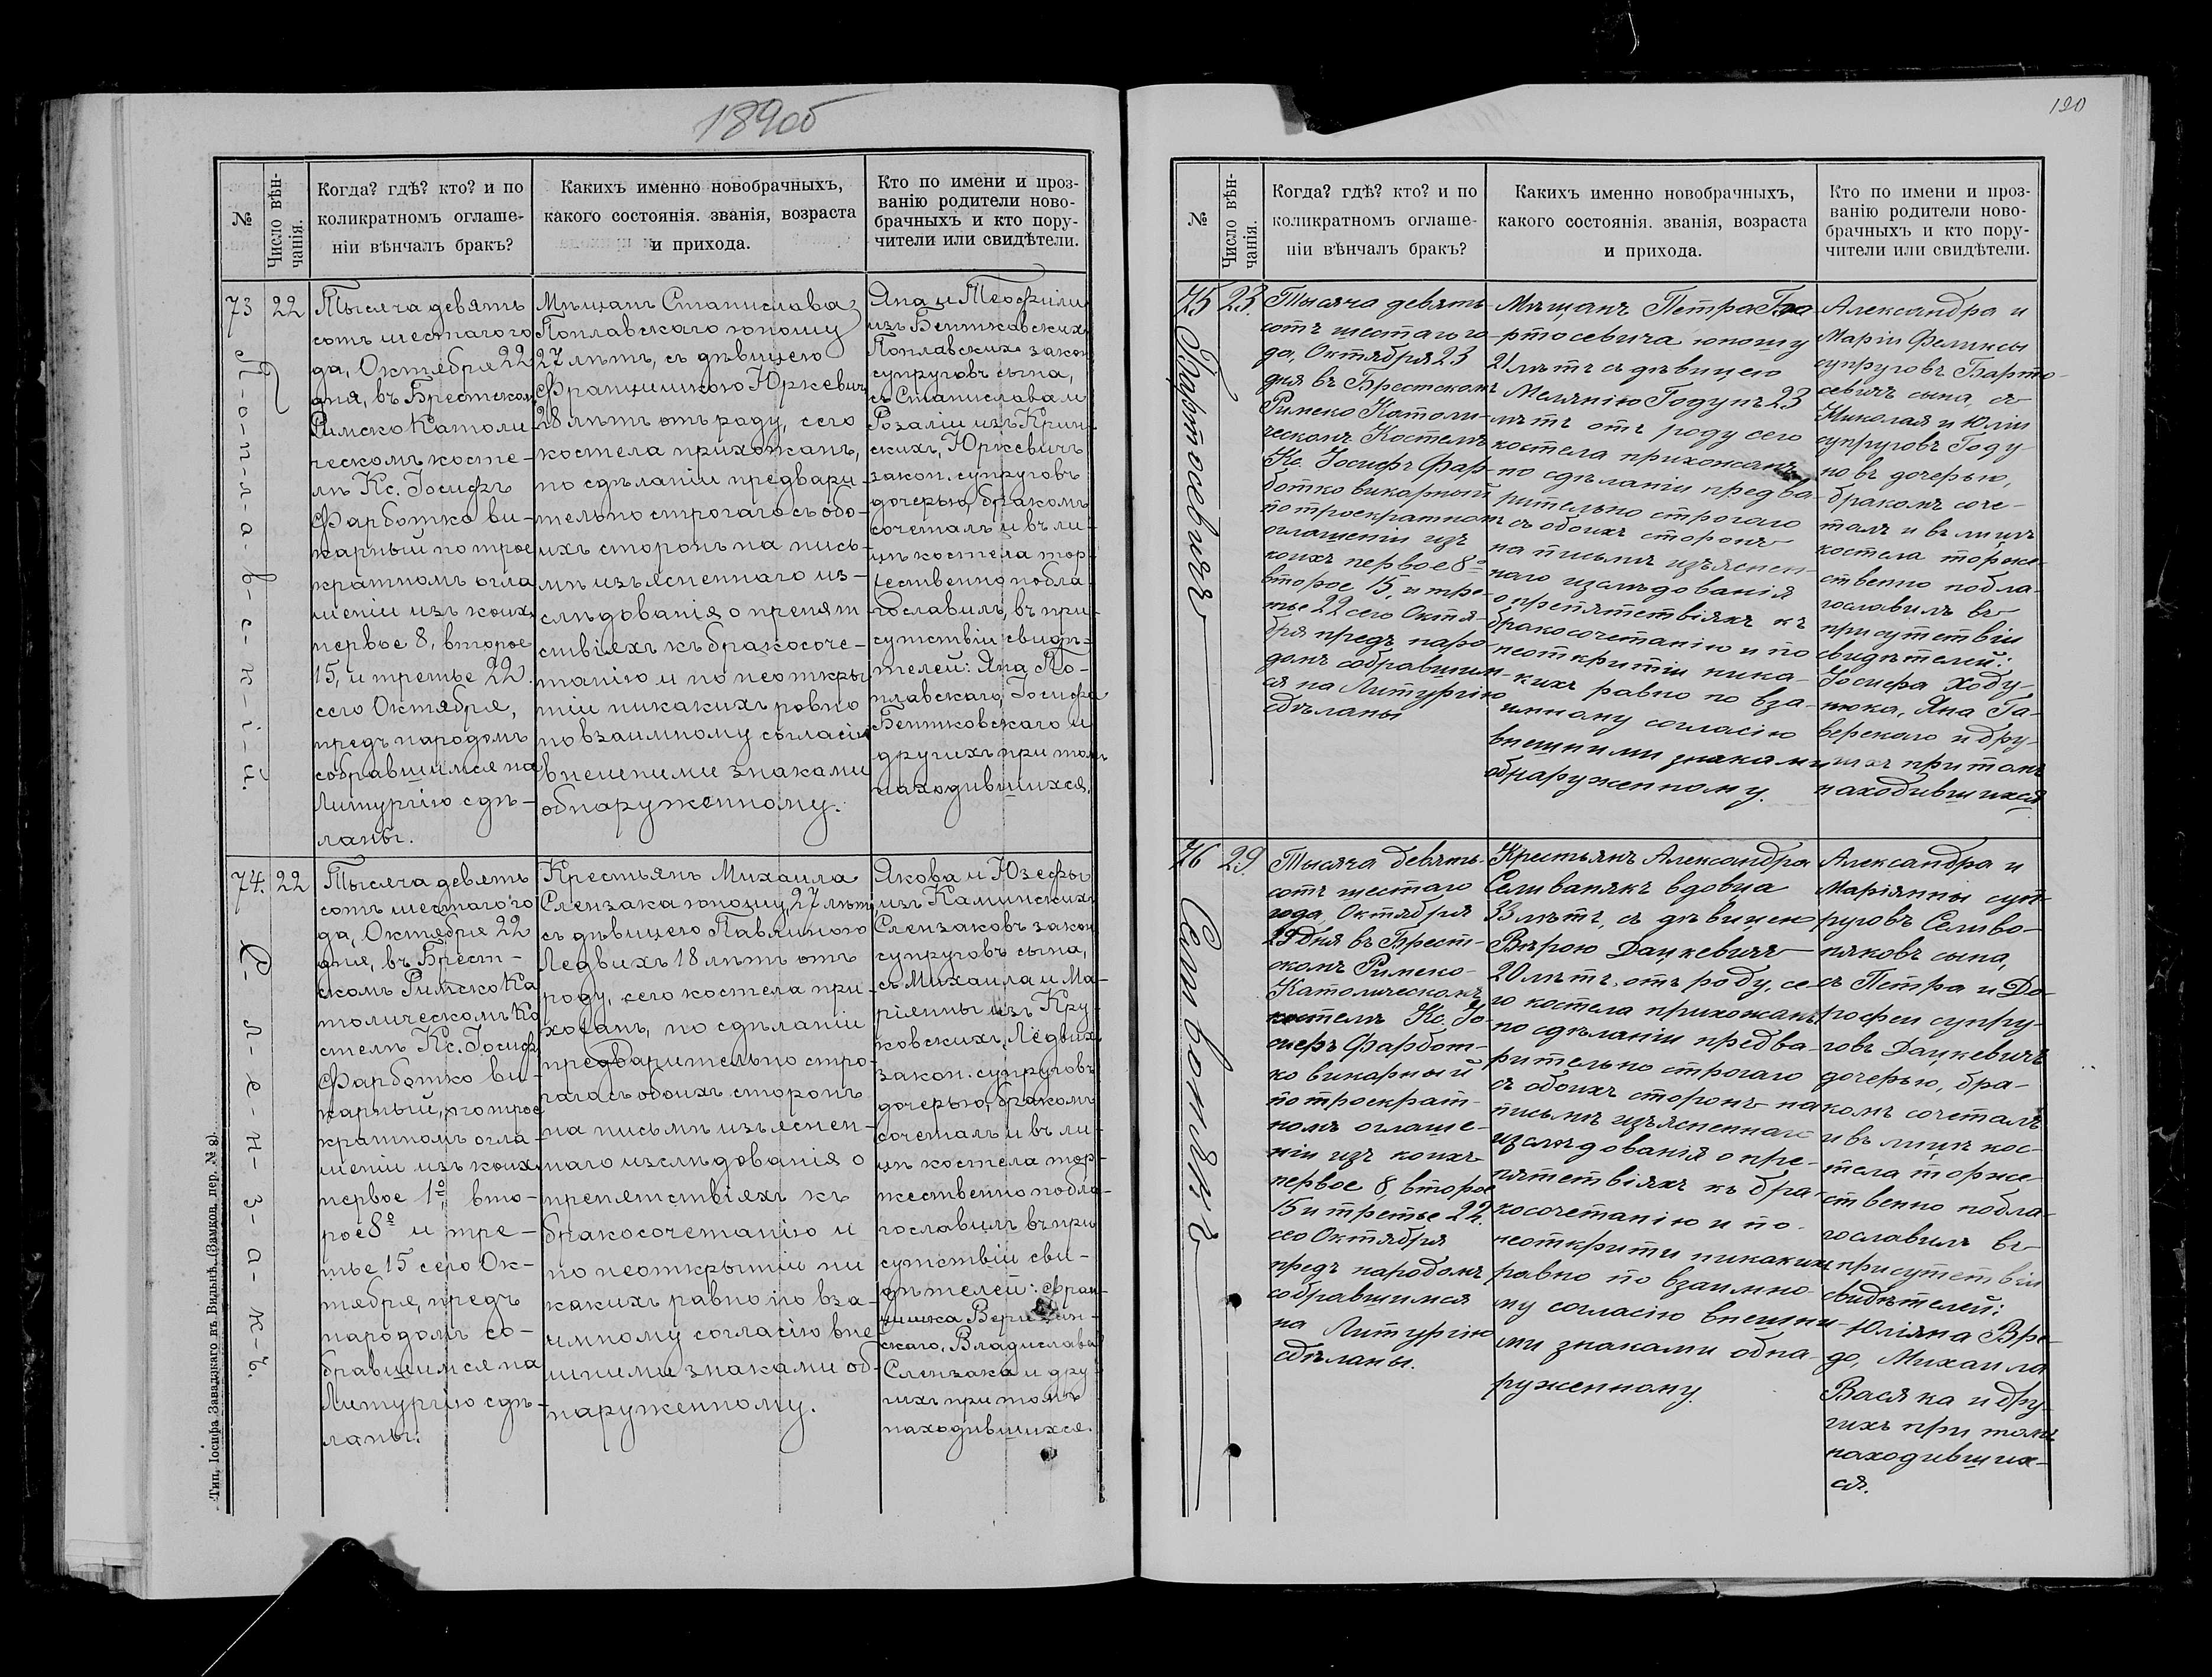 18906
120
№
Число вѣн-
чанія.
Когда? гдѣ? кто? и по
коликратномъ оглаше-
ніи вѣнчалъ бракъ?
Какихъ именно новобрачныхъ,
какого состоянія. званія, возраста
и прихода.
Кто по имени и проз-
ванію родители ново-
брачныхъ и кто пору-
чители или свидѣтели.
73
22
П-о-п-л-а-в-с-к-і-й.
Тысяча девять
сотъ шестаго го
да, Октября 22
дня, въ Брестском
Римско Католи-
ческомъ косте-
лѣ Кс. Іосифъ
Фарботко ви-
карный по трое
кратномъ огла
шеніи изъ коихъ
первое 8, второе
15, и третье 22
сего Октября,
предъ народомъ
собравшимся на
Литургію сдѣ-
ланы.
Мѣщанъ Станислава
Поплавскаго юношу
27 лѣтъ, съ дѣвицею
Францишкою Юркевичъ
28 лѣтъ отъ роду, сего
костела прихожанъ,
по сдѣланіи предвари-
тельно строгаго съ обо-
ихъ сторонъ на пись-
мѣ изъясненнаго из-
слѣдованія о препят
ствіяхъ къ бракосоче-
танію и по неоткры
тіи никакихъ ровно
по взаимному согласію
внешними знаками
обнаруженному.
Яна и Теофили
изъ Бентковских
Поплавских закон
супруговъ сына,
съ Станислава и
Розаліи изъ Крин-
скихъ, Юркевичъ
закон. супруговъ
дочерью, бракомъ
сочеталъ и въ ли-
цѣ костела тор-
жественно побла-
гославилъ, въ при-
сутствіи свидѣ-
телей: Яна По-
плавскаго, Іосифа
Бентковскаго и
другихъ при томъ
находившихся.
74.
22
С-л-е-н-з-а-к-ъ.
Тысяча девять
сотъ шестаго го
да, Октября 22
дня, въ Брест-
скомъ Римско Ка
толическомъ Ко
стелѣ Кс. Іосиф
Фарботко ви-
карный, по трое
кратномъ огла-
шеніи изъ коихъ
первое 1ᵒ, вто-
рое 8ᵒ и тре-
тье 15 сего Ок-
тября, предъ
народомъ со-
бравшимся на
Литургію сдѣ-
ланы.
Крестьянъ Михаила
Слензака юношу, 27 лѣтъ
съ дѣвицею Павлиною
Ледвихъ 18 лѣтъ отъ
роду, сего костела при-
хожанъ, по сдѣланіи
предварительно стро-
гаго съ обоихъ сторонъ
на письмѣ изъяснен-
наго изслѣдованія о
препятствіяхъ къ
бракосочетанію и
по неоткрытіи ни
какихъ равно по вза-
имному согласію вне
шними знаками об-
наруженному.
Якова и Юзефы
изъ Каминских
Слензаковъ закон
супруговъ сына,
съ Михаила и Ма-
ріянны изъ Кру-
ковскихъ, Ледвих
закон. супруговъ
дочерью, бракомъ
сочеталъ и въ ли-
цѣ костела тор-
жественно побла-
гославилъ въ при
сутствіи сви-
дѣтелей: Фран-
цишка
скаго, Владислава
Слензака и дру-
гихъ при томъ
находившихся.
Тип. Іосифа Завадзкаго въ Вильнѣ, (Замков. пер. № 8).
№
Число вѣн-
чанія.
Когда? гдѣ? кто? и по
коликратномъ оглаше-
ніи вѣнчалъ бракъ?
Какихъ именно новобрачныхъ,
какого состоянія. званія, возраста
и прихода.
Кто по имени и проз-
ванію родители ново-
брачныхъ и кто пору-
чители или свидѣтели.
75
23.
Бартосевичъ
Тысяча девять-
сотъ шестаго го
да, Октября 23
дня въ Брестском
Римско Католи-
ческомъ Костелѣ
Кс. Іосифъ Фар-
ботко викарный
по троекратномъ
оглашеніи изъ
коихъ первое 8ᵒ
второе 15, и тре-
тье 22 сего Октя-
бря предъ наро-
домъ собравшим-
ся на Литургію
сдѣланы
Мѣщанъ Петра Ба
ртосевича юношу
21 лѣтъ съ дѣвицею
Меланію Годунъ 23
лѣтъ отъ роду сего
костела прихожанъ
по сдѣланіи предва-
рительно строгаго
съ обоихъ сторонъ
на письмѣ изъяснен-
наго изслѣдованія
о препятствіяхъ къ
бракосочетанію и по
неоткритіи ника-
кихъ равно по вза-
имному согласію
внешними знаками
обнаруженному.
Александра и
Маріи Феликсы
супруговъ Барто-
севичъ сына, съ
Николая и Юліи
супруговъ Году-
новъ дочерью,
бракомъ соче-
талъ и въ лицѣ
костела торже-
ственно побла-
гославилъ въ
присутствіи
свидѣтелей:
Іосифа Ходу-
нюка, Яна Га-
верскаго и дру-
гихъ при томъ
находившихся
76
29.
Селивонякъ
Тысяча девять-
сотъ шестаго
года, Октября
29 дня въ Брест-
скомъ Римско-
Католическомъ
костелѣ Кс. Іо-
сифъ Фарбот-
ко викарный
по троекрат-
номъ оглаше-
ніи изъ коихъ
первое 8, второе
15 и третье 22.
сего Октября
предъ народомъ
собравшимся
на Литургію
сдѣланы.
Крестьянъ Александра
Селиванякъ вдовца
33 лѣтъ, съ дѣвицею
Вѣрою Дацкевичъ
20 лѣтъ, отъ роду, се-
го костела прихожанъ
по сдѣланіи предва-
рительно строгаго
съ обоихъ сторонъ на
письмѣ изъясненнаго
изслѣдованія о пре-
пятствіяхъ къ бра-
косочетанію и по
неоткрити никакихъ
равно по взаимно-
му согласію внешни-
ми знаками обна-
руженному.
Александра и
Маріянны суп-
руговъ Селиво-
няковъ сына,
съ Петра и До-
рофеи супру-
говъ Дацкевичъ
дочерью, бра-
комъ сочеталъ
и въ лицѣ кос-
тела торже-
ственно побла-
гославилъ въ
присутствіи
свидѣтелей:
Юліяна Вре-
до, Михаила
Васяка и дру-
гихъ при томъ
находивших-
ся.